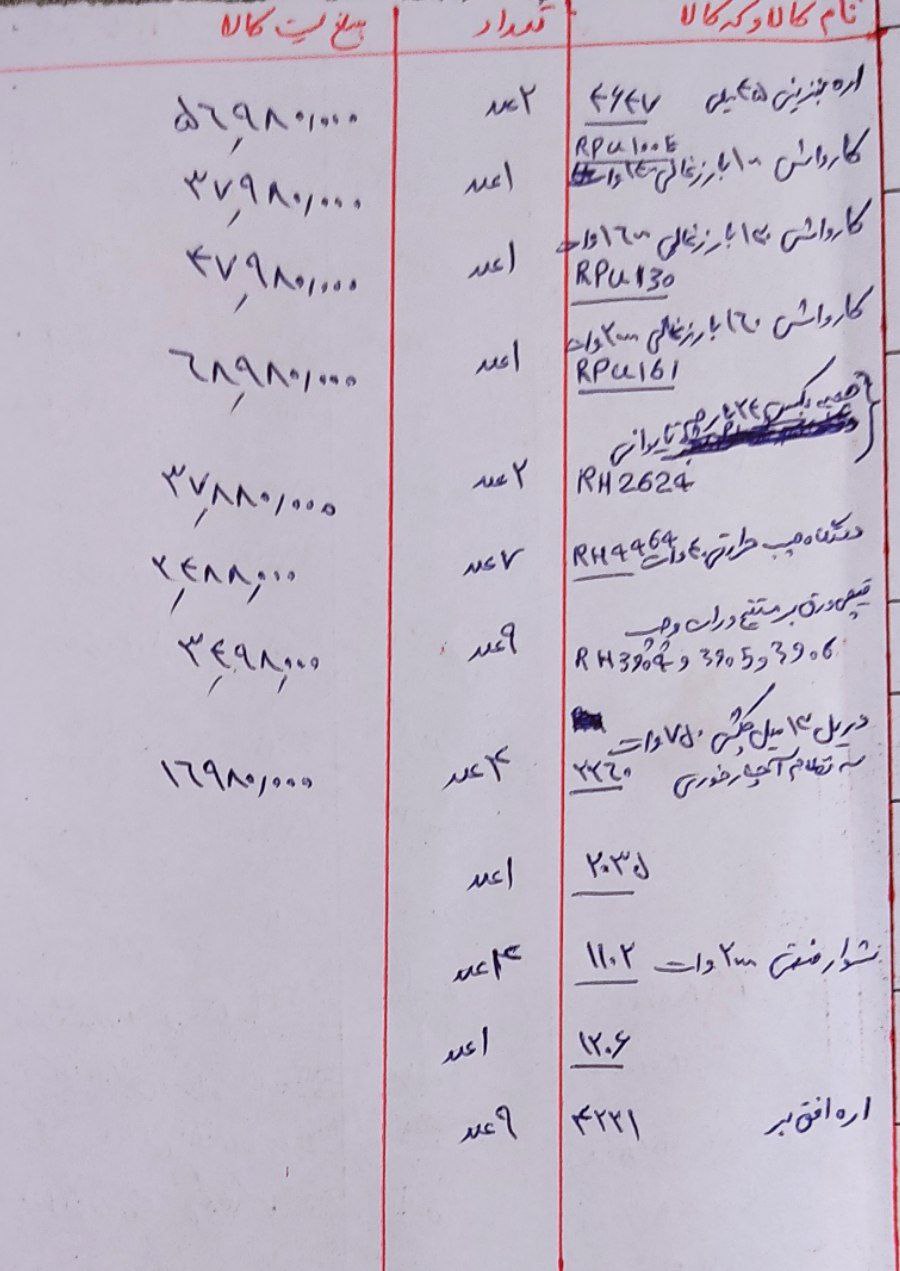 نام کالا و کد کالا تعداد مبلغ لیست کالا
اره بنزینی ۴۵ میلی ۴۶۴۷ ۲ عدد ۵۶,۹۸۰,۰۰۰
RPU100E
کارواش ۱۰۰ بار زغالی ۱۴۰۰ وات ۱ عدد ۳۷,۹۸۰,۰۰۰
کارواش ۱۳۰ بار زغالی ۱۶۰۰ وات ۱ عدد ۴۷,۹۸۰,۰۰۰
RPU130
کارواش ۱۶۰ بار زغالی ۲۰۰۰ وات ۱ عدد ۶۸,۹۸۰,۰۰۰
RPU161
جعبه بکس ۲۴ پارچه تایوانی
RH2624 ۲ عدد ۳۷,۸۸۰,۰۰۰
دستگاه چسب حرارتی ۴۰ وات RH4464 ۷ عدد ۲,۴۸۸,۰۰۰
قیچی ورق بر مستقیم و راست و چپ
RH3904 و 3905 و 3906 ۹ عدد ۳,۴۹۸,۰۰۰
دریل ۱۳ میل چکشی ۷۵۰ وات
سه نظام آچار خوری ۲۲۶۰ ۴ عدد ۱۶۹۸۰,۰۰۰
۲۰۳۵ ۱ عدد
سشوار صنعتی ۲۰۰۰ وات ۱۱۰۲ ۱۴ عدد
۱۲۰۶ ۱ عدد
اره افقی بر ۴۲۲۱ ۹ عدد